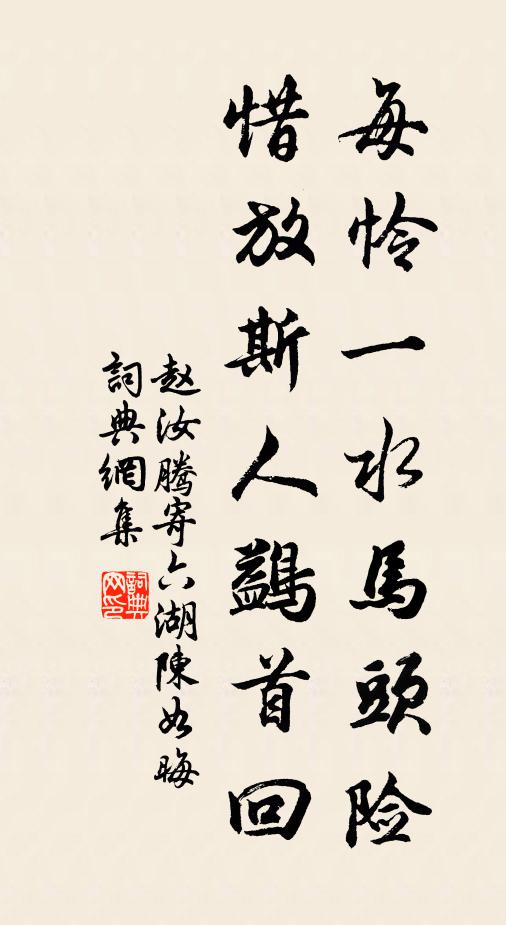 每怜一水馬頭险
惜放斯人鷁首回
赵汝腾寄六湖陳如晦
詞典網集
詞典网印